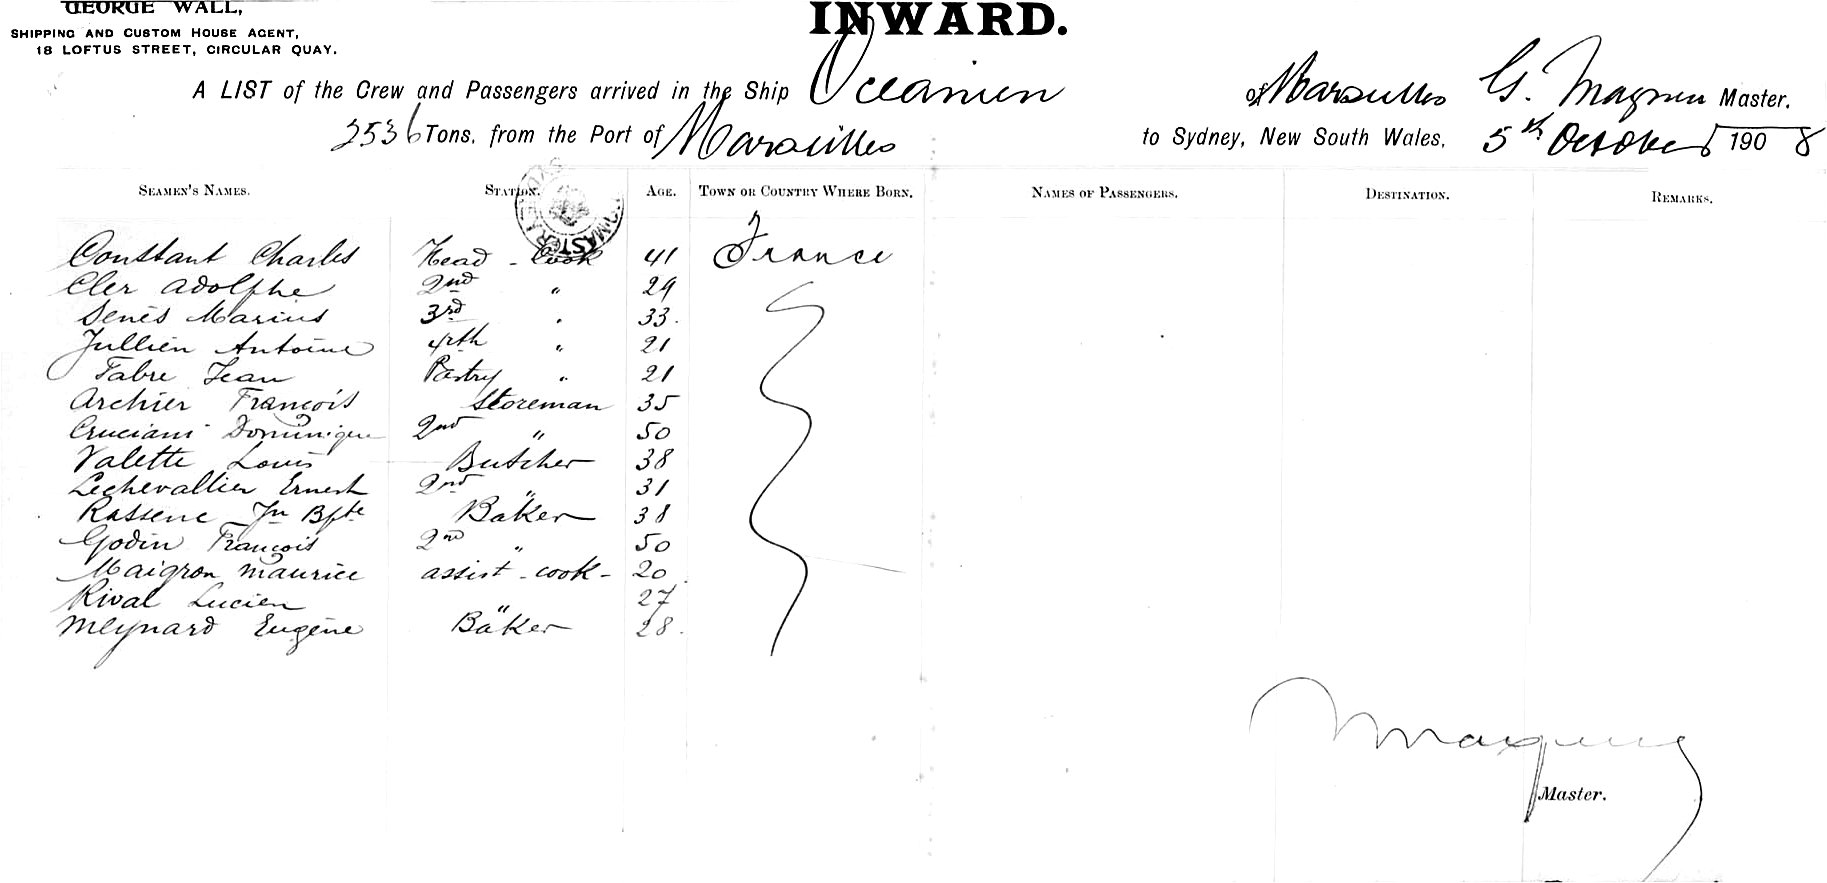 GEORGE WALL,
SHIPPING AND CUSTOM HOUSE AGENT,
18 LOFTUS STREET, CIRCULAR QUAY.
INWARD.
A LIST of the Crew and Passengers arrived in the Ship Oceanien of Marseilles G. Magnen Master.
2536 Tons, from the Port of Marseilles to Sydney, New South Wales, 5th October 1908
SEAMEN'S NAMES. STATION. AGE. TOWN OR COUNTRY WHERE BORN. NAMES OF PASSENGERS. DESTINATION. REMARKS.
Constant Charles Head - Cook 41 France
Cler Adolphe 2nd " 29
Senès Marius 3rd " 33.
Jullien Antoine 4rth " 21
Fabre Jean Pastry " 21
Archier François Storeman 35
Cruciani Dominique 2nd " 50
Valette Louis Butcher 38
Lechevallier Ernest 2nd " 31
Rassene Jn Bpte Baker 38
Godin François 2nd " 50
Maigron Maurice assist - cook - 20
Rival Lucien " 27
Meynard Eugène Baker 28.
Master.